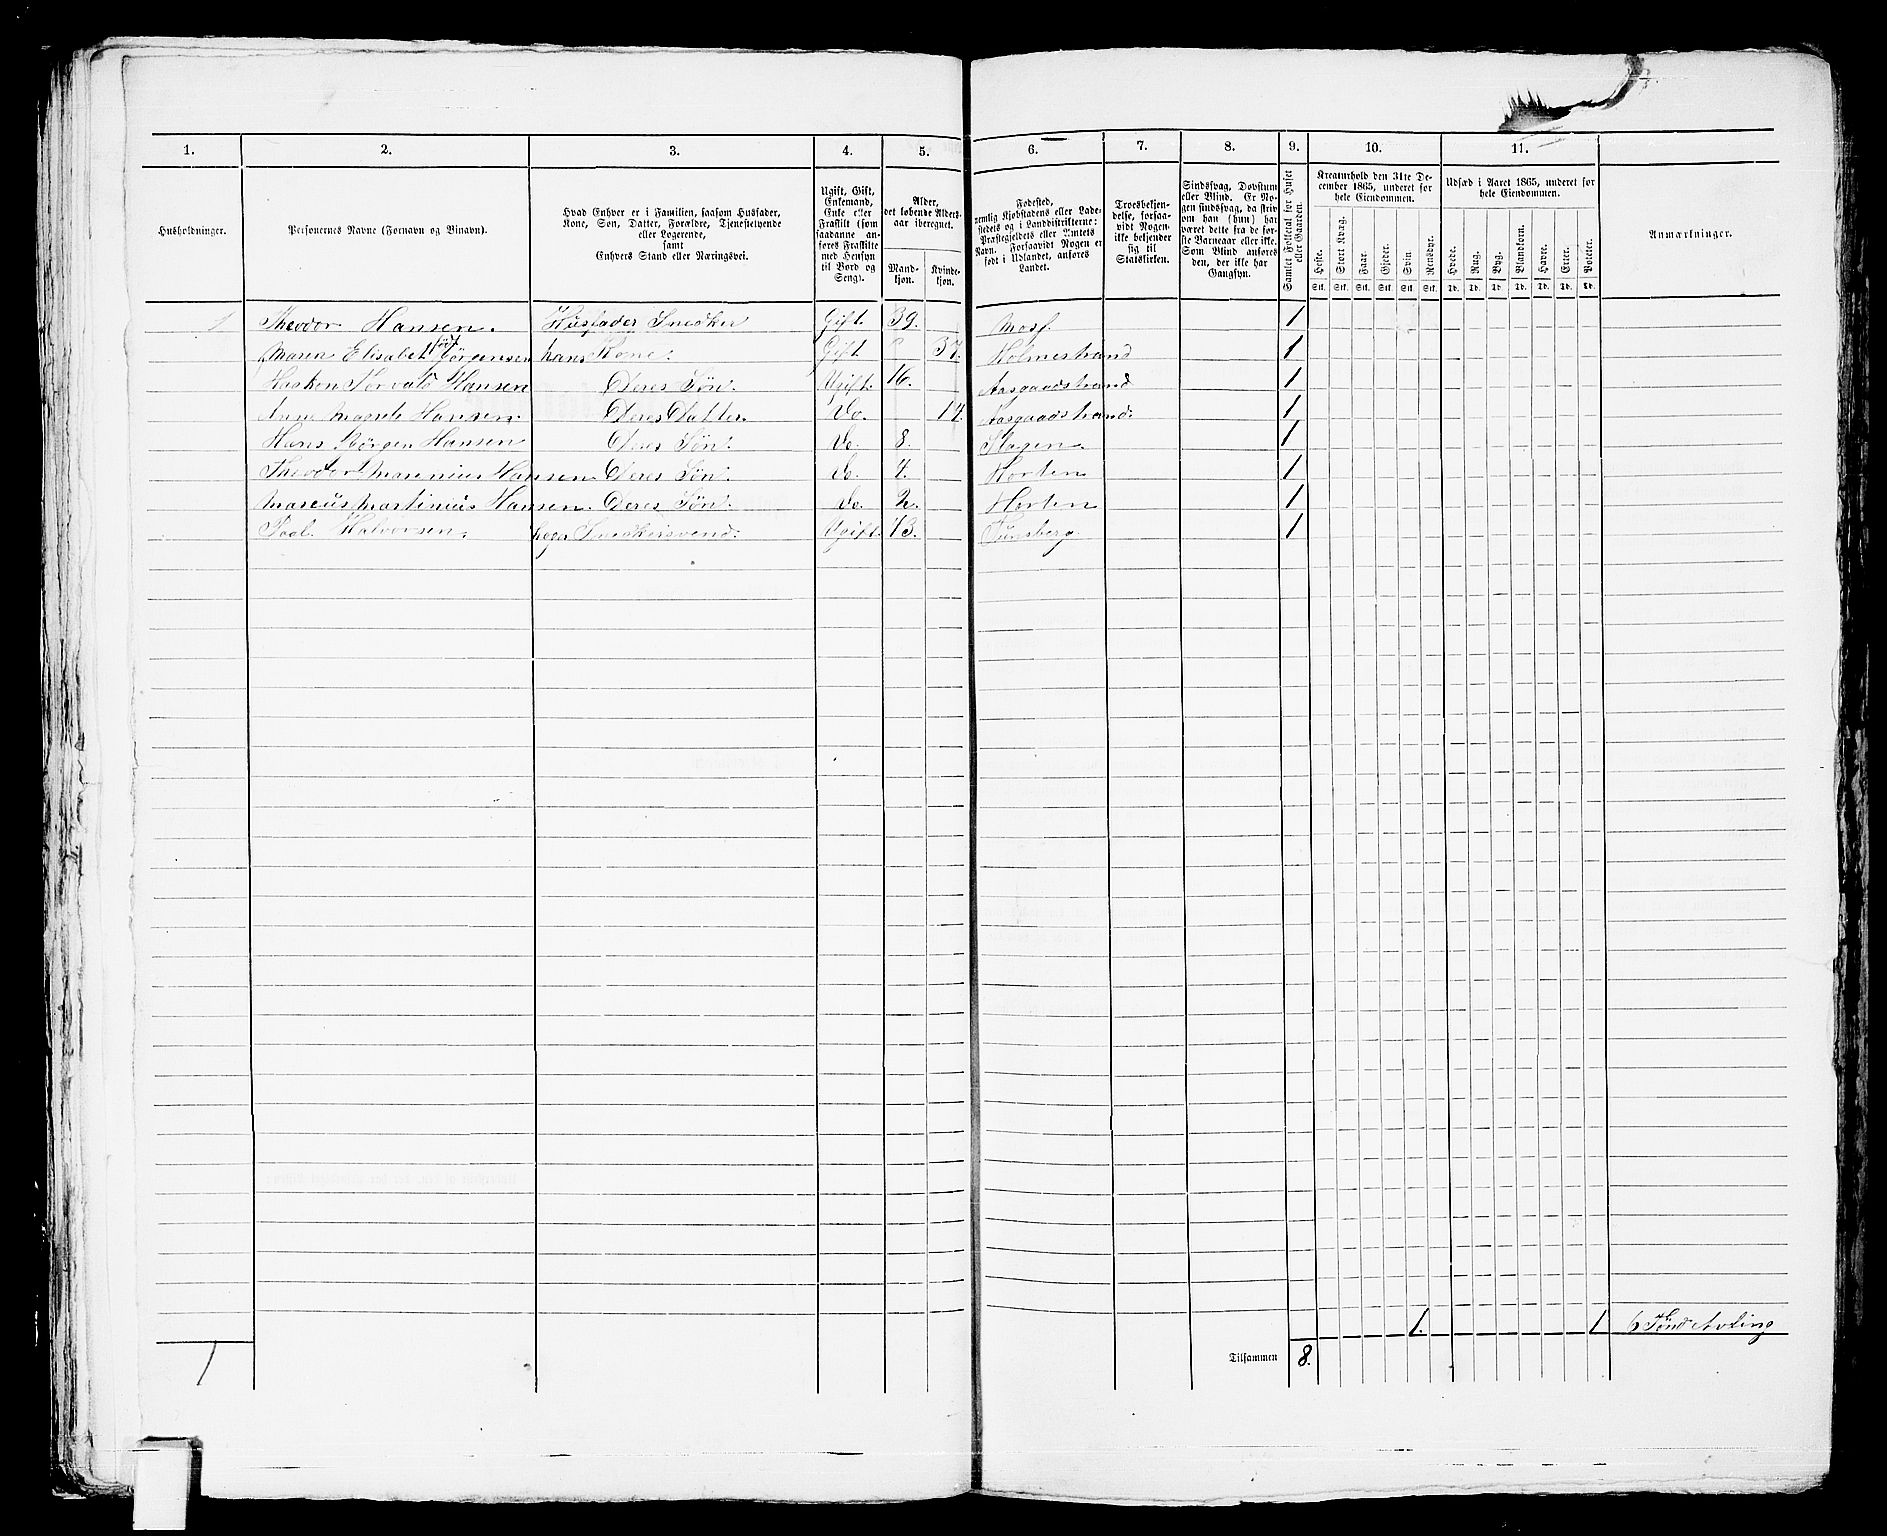 1. 2. 3. 4. 5. 6. 7. 8. 9. 10. 11.
Husholdninger.
Personernes Navne (Fornavn og Binavn).
Hvad Enhver er i Familien, saasom Husfader,
Kone, Søn, Datter, Forældre, Tjenestetyende
eller Logerende,
samt
Enhvers Stand eller Næringsvei.
Ugift, Gift,
Enkemand,
Enke eller
Fraskilt (som
saadanne an-
føres Fraskilte
med Hensyn
til Bord og
Seng).
Alder,
det løbende Alders-
aar iberegnet.
Mand-
kjøn.
Kvinde-
kjøn.
Fødested,
nemlig Kjøbstadens eller Lade-
stedets og i Landdistrikterne:
Præstegjeldets eller Amtets
Navn. Forsaavidt Nogen er
født i Udlandet, anføres
Landet.
Troesbekjen-
delse, forsaa-
vidt Nogen
ikke bekjender
sig til
Statskirken.
Sindssvag, Døvstum
eller Blind. Er No-
gen sindssvag, da skriv
om han (hun) har
været dette fra de før-
ste Barneaar eller ikke.
Som Blind anføres
den, der ikke har
Gangsyn.
Samlet Folketal for Huset
eller Gaarden.
Kreaturhold den 31te De-
cember 1865, underet for
hele Eiendommen.
Heste. Stort Kvæg. Faar. Gjeder. Svin Rensdyr.
Stk. Stk. Stk. Stk. Stk. Stk.
Udsæd i Aaret 1865, underet for
hele Eiendommen.
Hvede. Rug. Byg. Blandkorn. Havre. Erter. Poteter.
Td. Td. Td. Td. Td. Td. Td.
Anmærkninger.
1 Theodor Hansen. Husfader Snedker Gift. 39. Moss. 1
Maren Elisabet født Jørgensen hans Kone. Gift 37. Holmestrand 1
Haakon Torvald Hansen Deres Søn. Ugift. 16. Aasgaadstrand 1
Anne Magrete Hansen. Deres Datter. Do. 14. Aasgaadstrand. 1
Hans Jørgen Hansen Deres Søn. Do. 8. Slagen 1
Theodor Marenius Hansen Deres Søn. Do. 4. Horten 1
Marcus Martinius Hansen. Deres Søn. Do. 2. Horten 1
Paal Halvorsen. Snedkersvend. Ugift. 43. Tunsberg. 1
1. 1 6 Tønde Avling
1 Tilsammen 8.